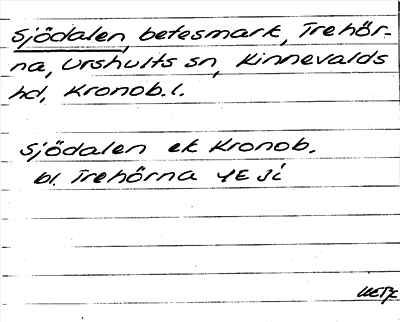 Sjödalen, betesmark, Trehör-
na, Urshults sn, Kinnevalds
hd, Kronob. l.
Sjödalen ek Kronob.
bl. Trehörna 4E Ji